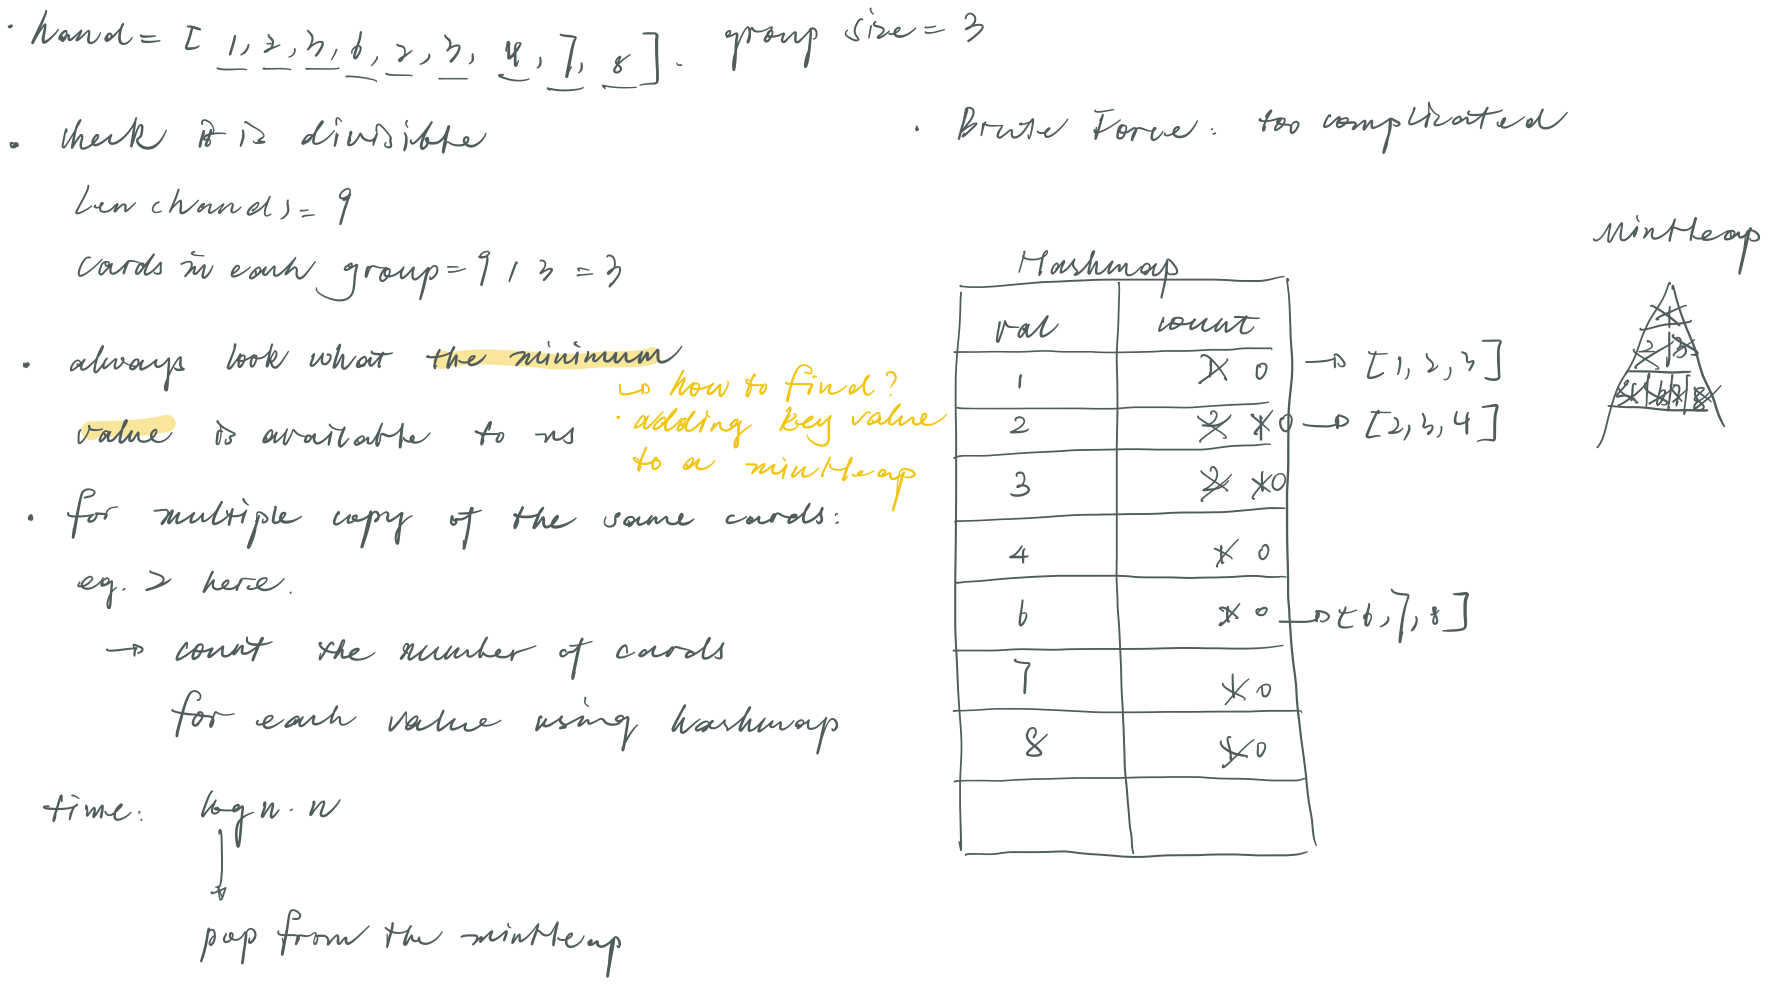 · hand = [ 1, 2, 3, 6, 2, 3, 4, 7, 8 ]. group size = 3
· check it is divisible
len(hand) = 9
cards in each group = 9 / 3 = 3
· always look what the minimum
value is available to us
↳ how to find?
· adding key value
to a minHeap
· for multiple copy of the same cards:
eg. 2 here.
→ count the number of cards
for each value using hashmap
time: log n · n
↓
pop from the minHeap
· Brute Force: too complicated
Hashmap
val count
1 1 0 → [1, 2, 3]
2 2 1 0 → [2, 3, 4]
3 2 1 0
4 1 0
6 1 0 → [6, 7, 8]
7 1 0
8 1 0
MinHeap
1
2 3
4 6 7 8